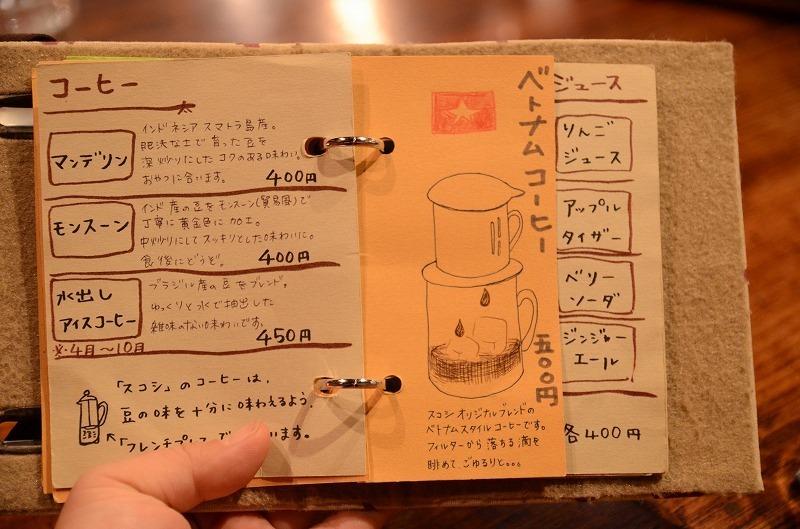 コーヒー
マンデリン
インドネシア スマトラ島産。
肥沃な土で育った豆を
深炒りにした コクのある味わい。
おやつに合います。
400円
モンスーン
インド産の豆をモンスーン(貿易風)で
丁寧に黄金色に加工。
中炒りにしてスッキリとした味わいに。
食後にどうぞ。
400円
水出し
アイスコーヒー
ブラジル産の豆をブレンド。
ゆっくりと水で抽出した
雑味のない味わいです。
450円
※・4月〜10月
「スコシ」のコーヒーは、
豆の味を十分に味わえるよう、
「フレンチプレス」で
います。
ベトナムコーヒー
五〇〇円
スコシ オリジナルブレンドの
ベトナムスタイルコーヒーです。
フィルターから落ちる滴を
眺めて、ごゆるりと。。。
ジュース
りんご
ジュース
アップル
タイザー
ベリー
ソーダ
ジンジャー
エール
各400円